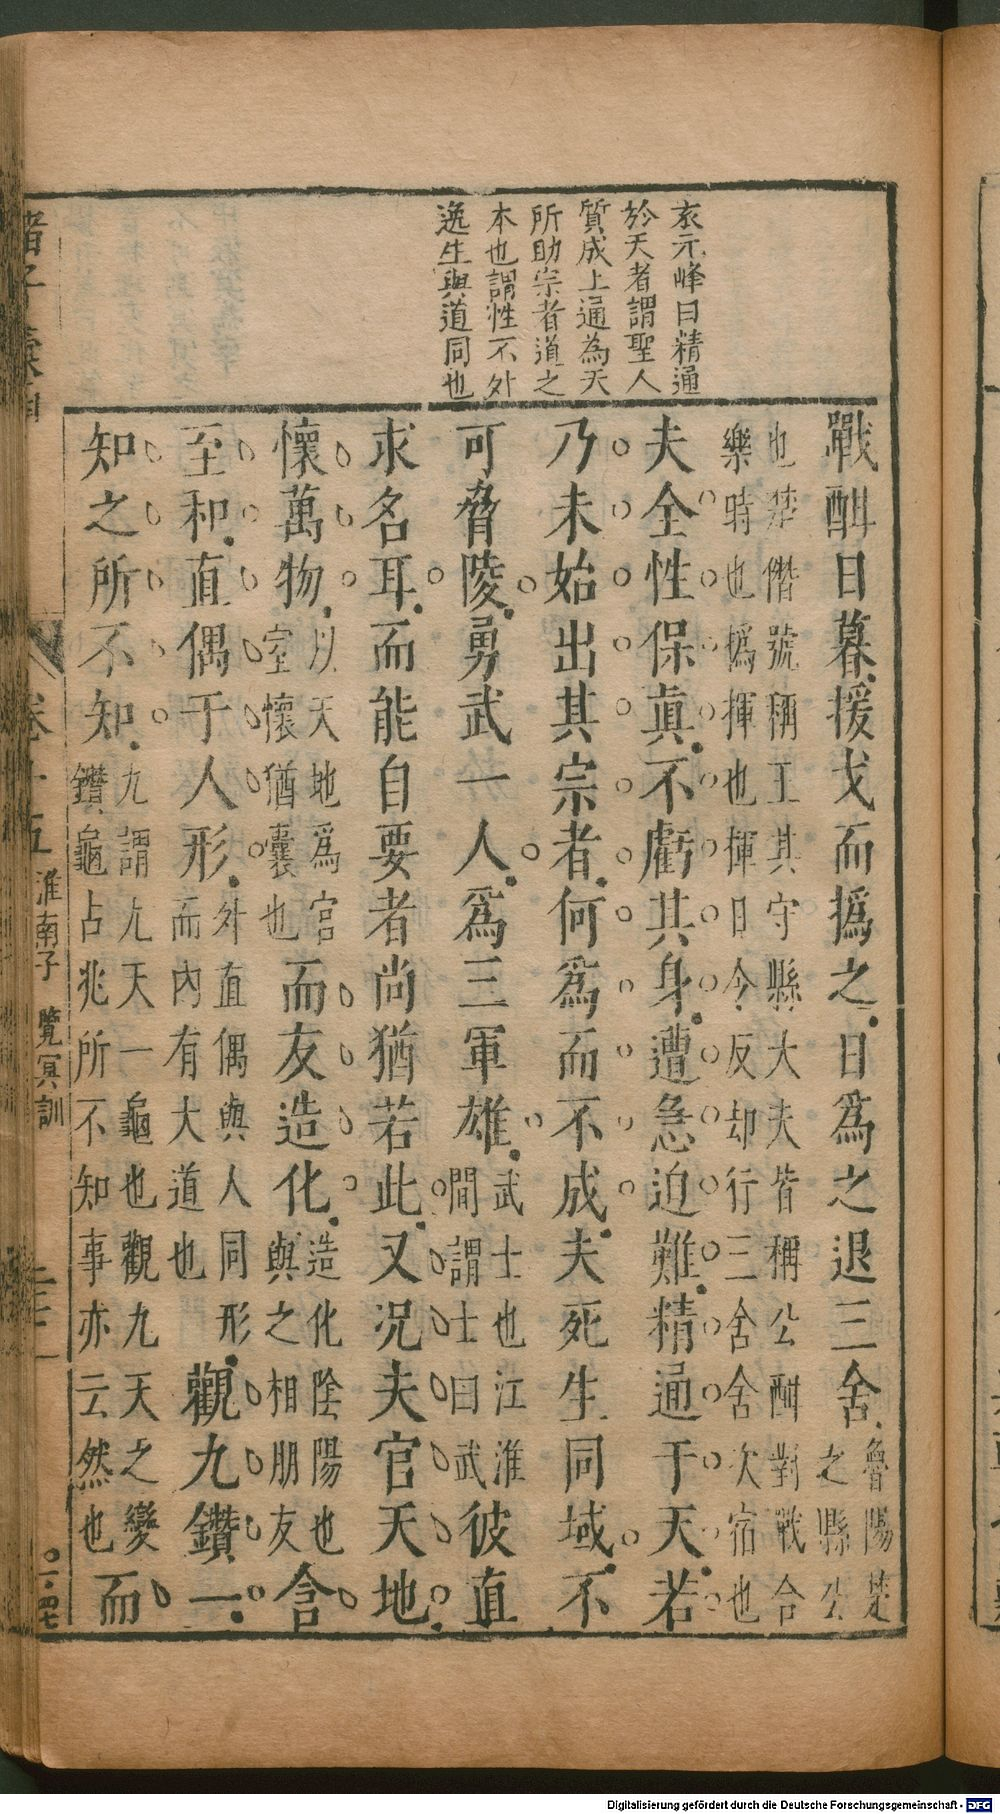 袁元峰曰精通
於天者謂聖人
質成上通為天
所助宗者道之
本也謂性不外
逸生與道同也
戰酣日暮援戈而撝之日爲之退三舍魯陽楚之縣公
也楚僭號稱王其守縣大夫皆稱公酣對戰合
樂時也撝揮也揮日令反却行三舍舍次宿也
夫全性保眞不虧其身遭急迫難精通于天若
乃未始出其宗者何爲而不成夫死生同域不
可脅陵勇武一人爲三軍雄武士也江淮間謂士曰武彼直
求名耳而能自要者尚猶若此又况夫官天地
懷萬物以天地爲宫室懷猶囊也而友造化造化陰陽也與之相朋友含
至和直偶于人形外直偶與人同形而內有大道也觀九鑽一
知之所不知九謂九天一龜也觀九天之變鑽龜占兆所不知事亦云然也而
諸子
卷十五 淮南子 覽冥訓
Digitalisierung gefördert durch die Deutsche Forschungsgemeinschaft - DFG